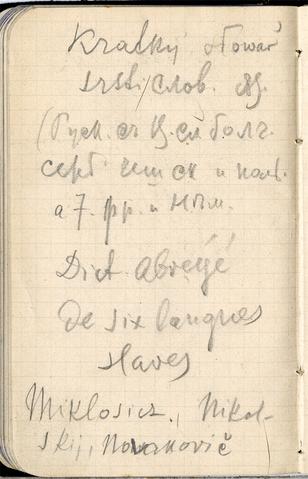 Kratký slowař
srsti/слов. яз.
(Русск. ст ц. сл болг.
серб чешск и польс.
а 7. фр. и нѣм.
Dict. abrégé
de six langues
slaves
Miklosicz, Nikol-
skij, Novakovič